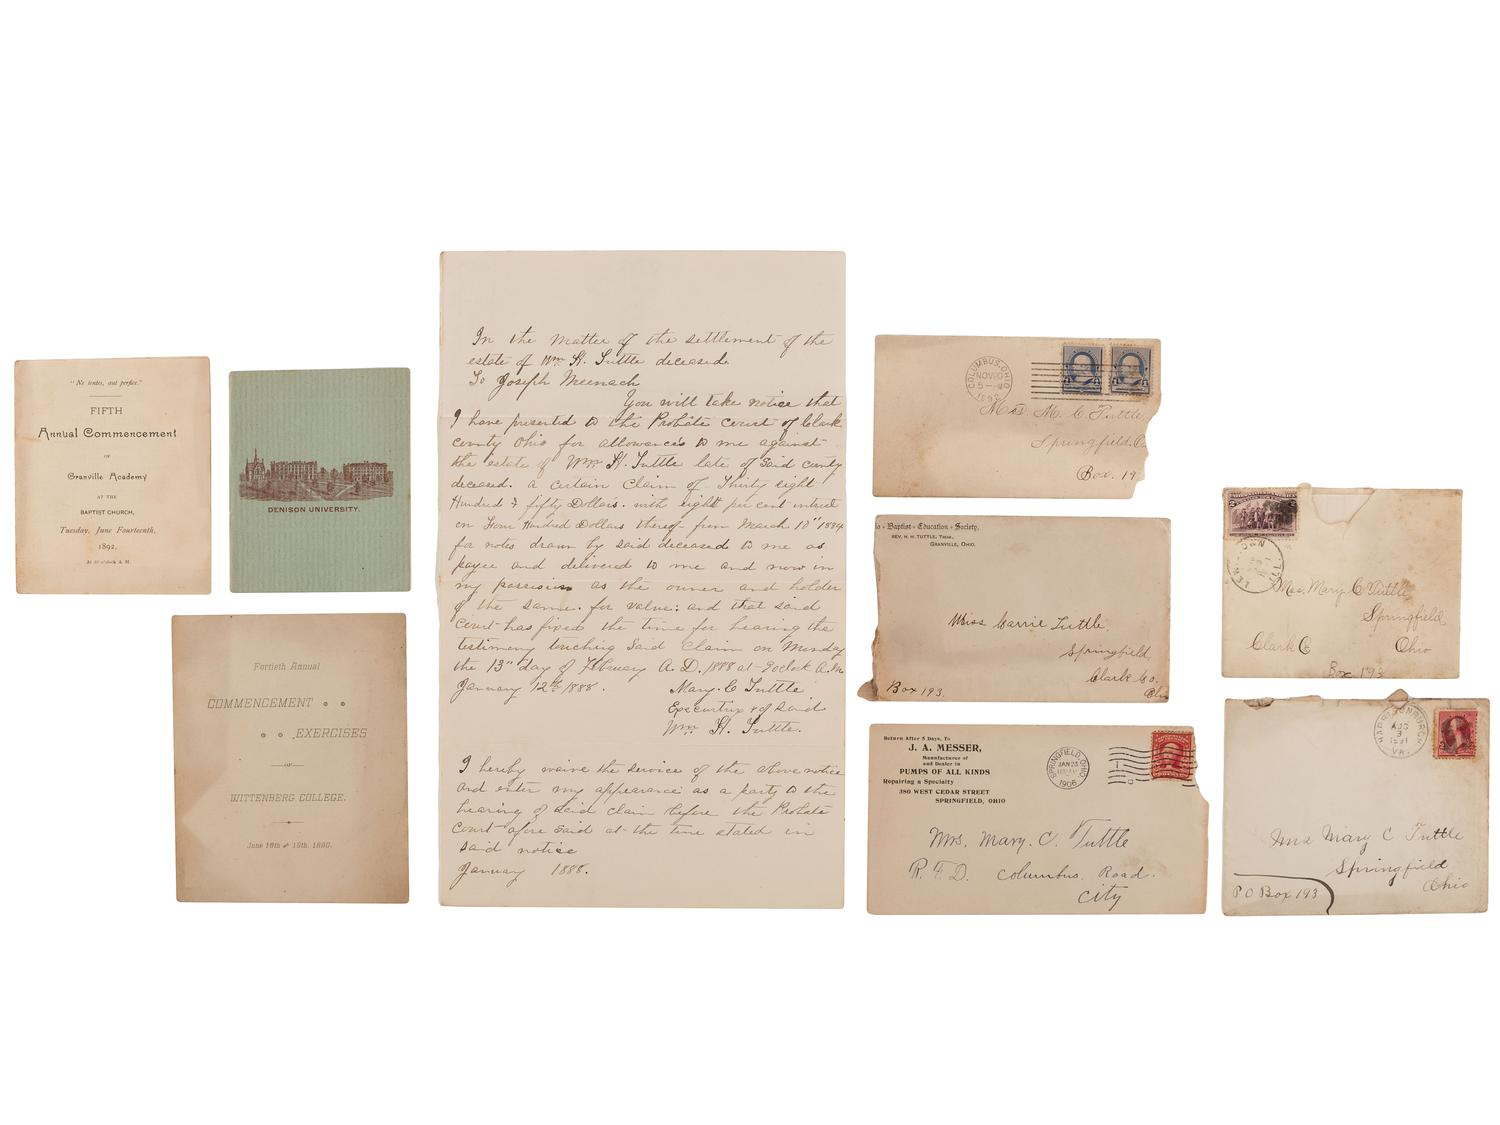 "Ne tentes, aut perfice."
FIFTH
Annual Commencement
OF
Granville Academy
AT THE
BAPTIST CHURCH,
Tuesday, June Fourteenth,
1892,
At 10 o'clock A. M.
DENISON UNIVERSITY.
Fortieth Annual
COMMENCEMENT
EXERCISES
OF
WITTENBERG COLLEGE.
June 18th and 19th, 1890.
In the matter of the settlement of the
estate of Wm H. Tuttle deceased
To Joseph Meenach
You will take notice that
I have presented to the Probate court of Clark
county Ohio for allowances to me against
the estate of Wm H. Tuttle late of said county
deceased. a certain claim of Thirty eight
Hundred & fifty Dollars. with eight per cent intrest
on Four Hundred Dollars thereof from March 10" 1884
for notes drawn by said deceased to me as
payee and delivered to me and now in
my possesion as the owner and holder
of the same. for value: and that said
court has fixed the time for hearing the
testimony touching said claim on Monday
the 13" day of February A. D. 1888 at 9 oclock A.M
January 12th 1888.
Mary. C Tuttle
Executrix of said
Wm H. Tuttle.
I hereby waive the service of the above notice
and enter my appearance as a party to the
hearing of said claim before the Probate
court afore said at the time stated in
said notice
January 1888.
COLUMBUS, OHIO
NOV 20
5-PM
Mrs. M. C. Tuttle
Springfield. O.
Box. 19
Baptist Education Society,
REV. H. H. TUTTLE, Treas.,
GRANVILLE, OHIO.
Miss Carrie Tuttle,
Springfield,
Clark Co.
Box 193.
Return After 5 Days, To
J. A. MESSER,
Manufacturer of
and Dealer in
PUMPS OF ALL KINDS
Repairing a Specialty
380 WEST CEDAR STREET
SPRINGFIELD, OHIO
SPRINGFIELD, OHIO
JAN 23
1906
Mrs. Mary. C. Tuttle
R. F. D. Columbus. Road.
City
Mrs. Mary C Tuttle
Springfield
Clark Co Ohio
Box 193
HARRISONBURGH
AUG
3
1891
VA.
Mrs Mary C Tuttle
Springfield
Ohio
P O Box 193